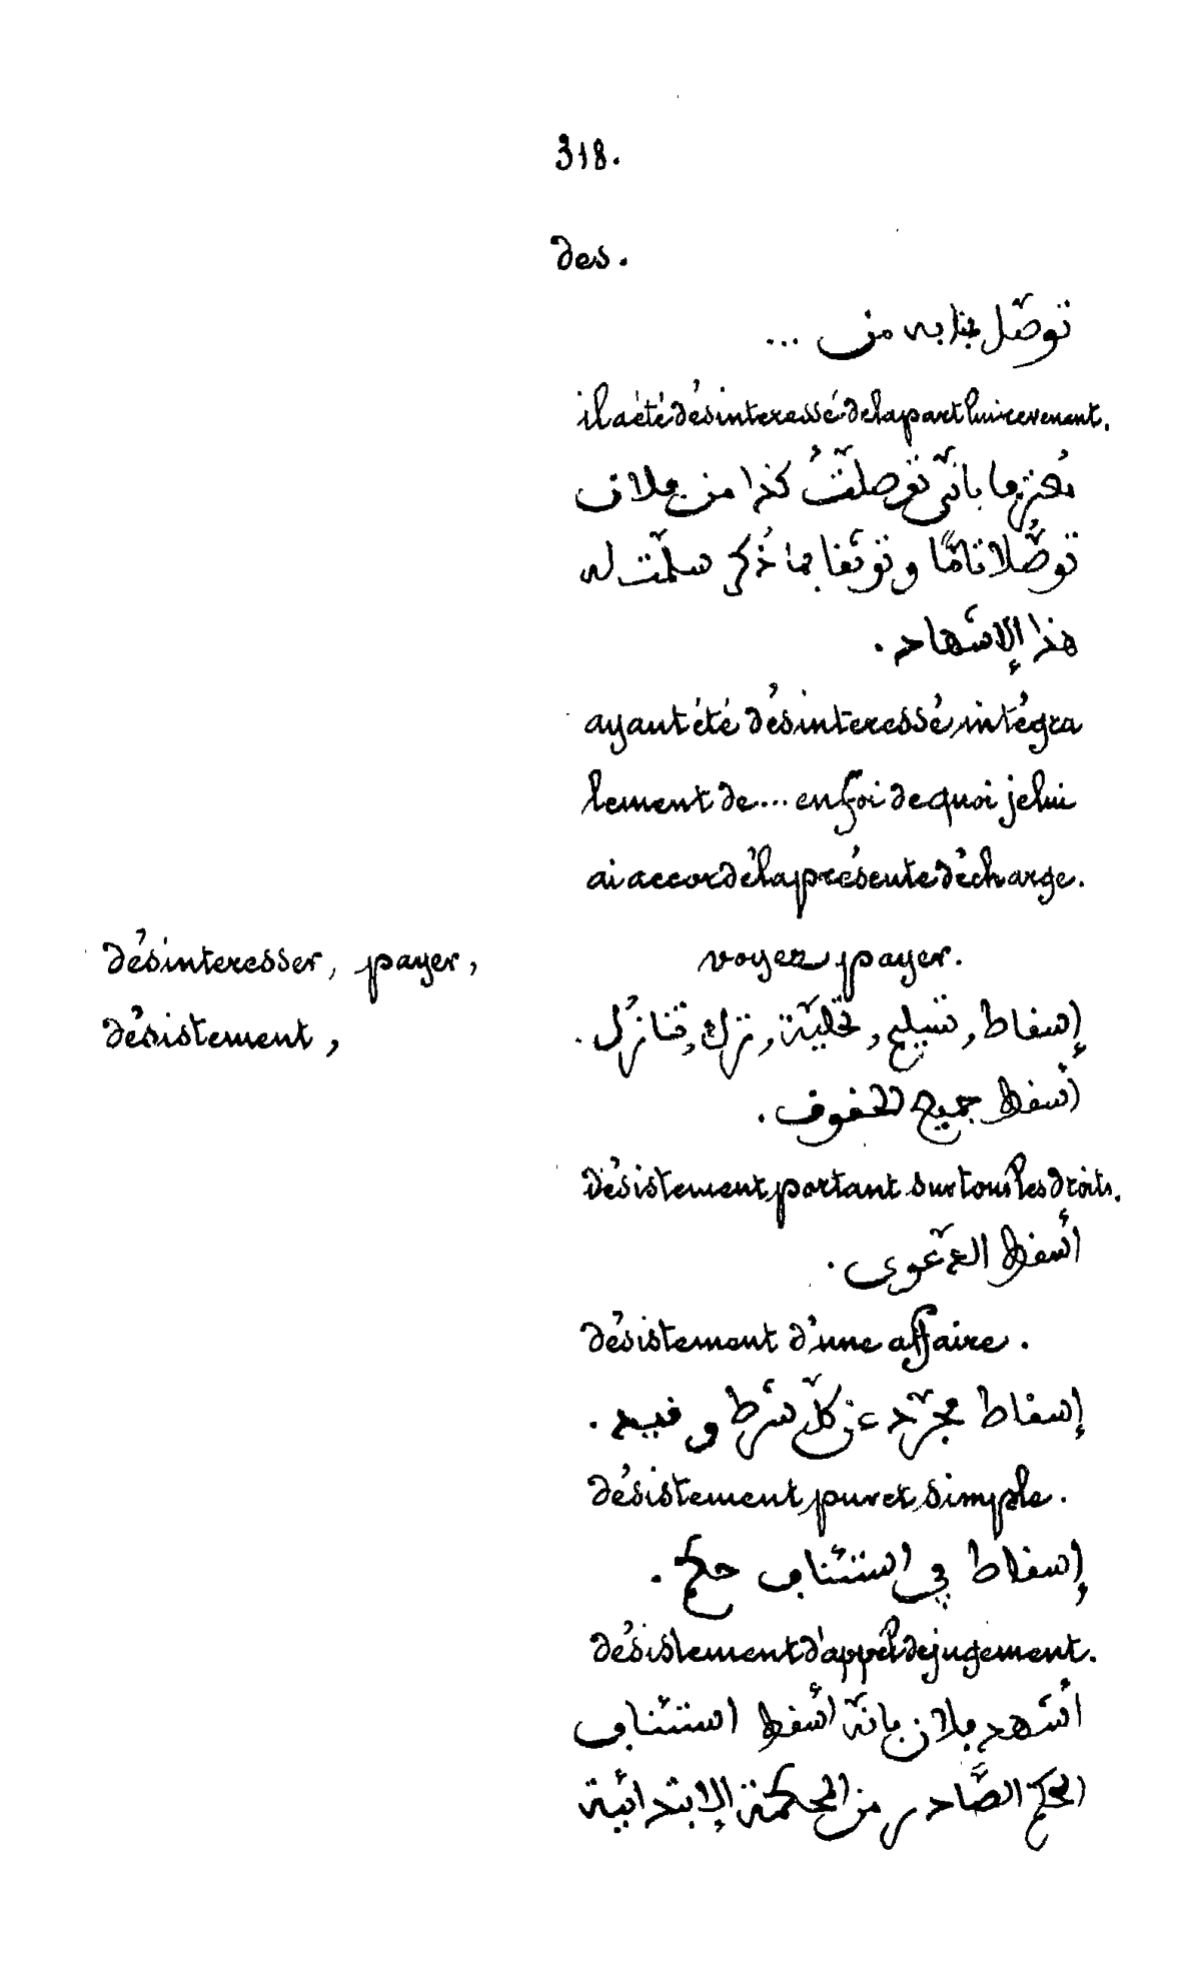 318.
des.
توصّل بنابه من ...
il a été désinteressé de la part lui revenant.
معترفا بأنّي توصلتُ كذا من فلان
توصُّلا تامًّا وتوثقا بما ذُكر سلّمت له
هذا الإشهاد.
ayant été désinteressé, intégra
lement de.... en foi de quoi je lui
ai accordé la présente décharge.
désinteresser, payer, voyez payer.
désistement, إسقاط, تسليم, تخليّة, ترك, تنازُل.
أسقط جميع الحقوق.
désistement, portant sur tous les droits.
أسقط الدّعوى.
désistement d'une affaire.
إسقاط مجرّد عن كلّ شرط وقيد.
désistement, pur et simple.
إسقاط في استئناف حكم.
désistement d'appel de jugement.
أشهد فلان بأنّه أسقط استئناف
الحكم الصَّادر من المحكمة الإبتدائية